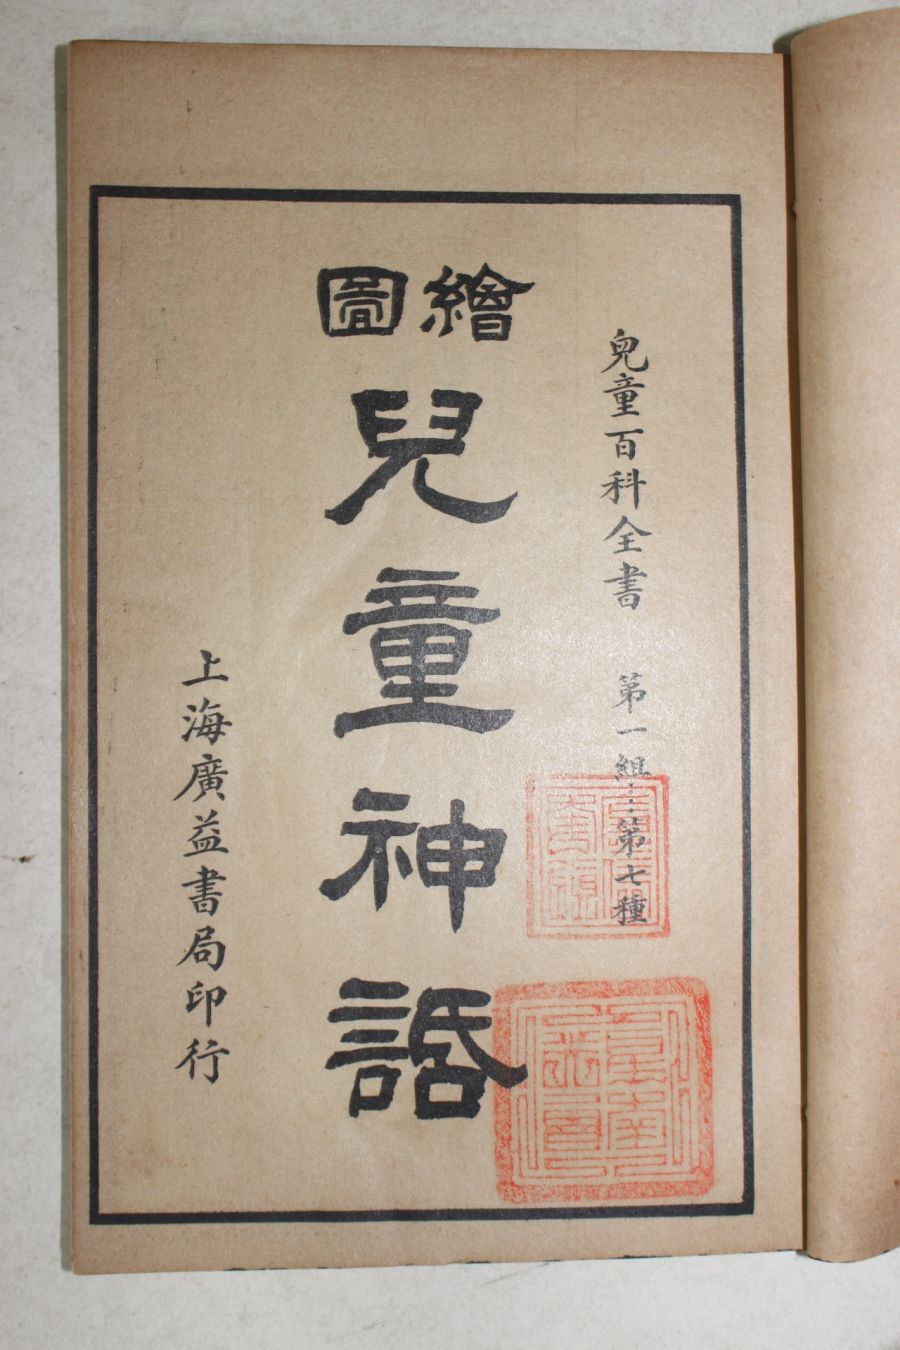 兒童百科全書 第一組…第七種
繪圖
兒童神話
上海廣益書局印行